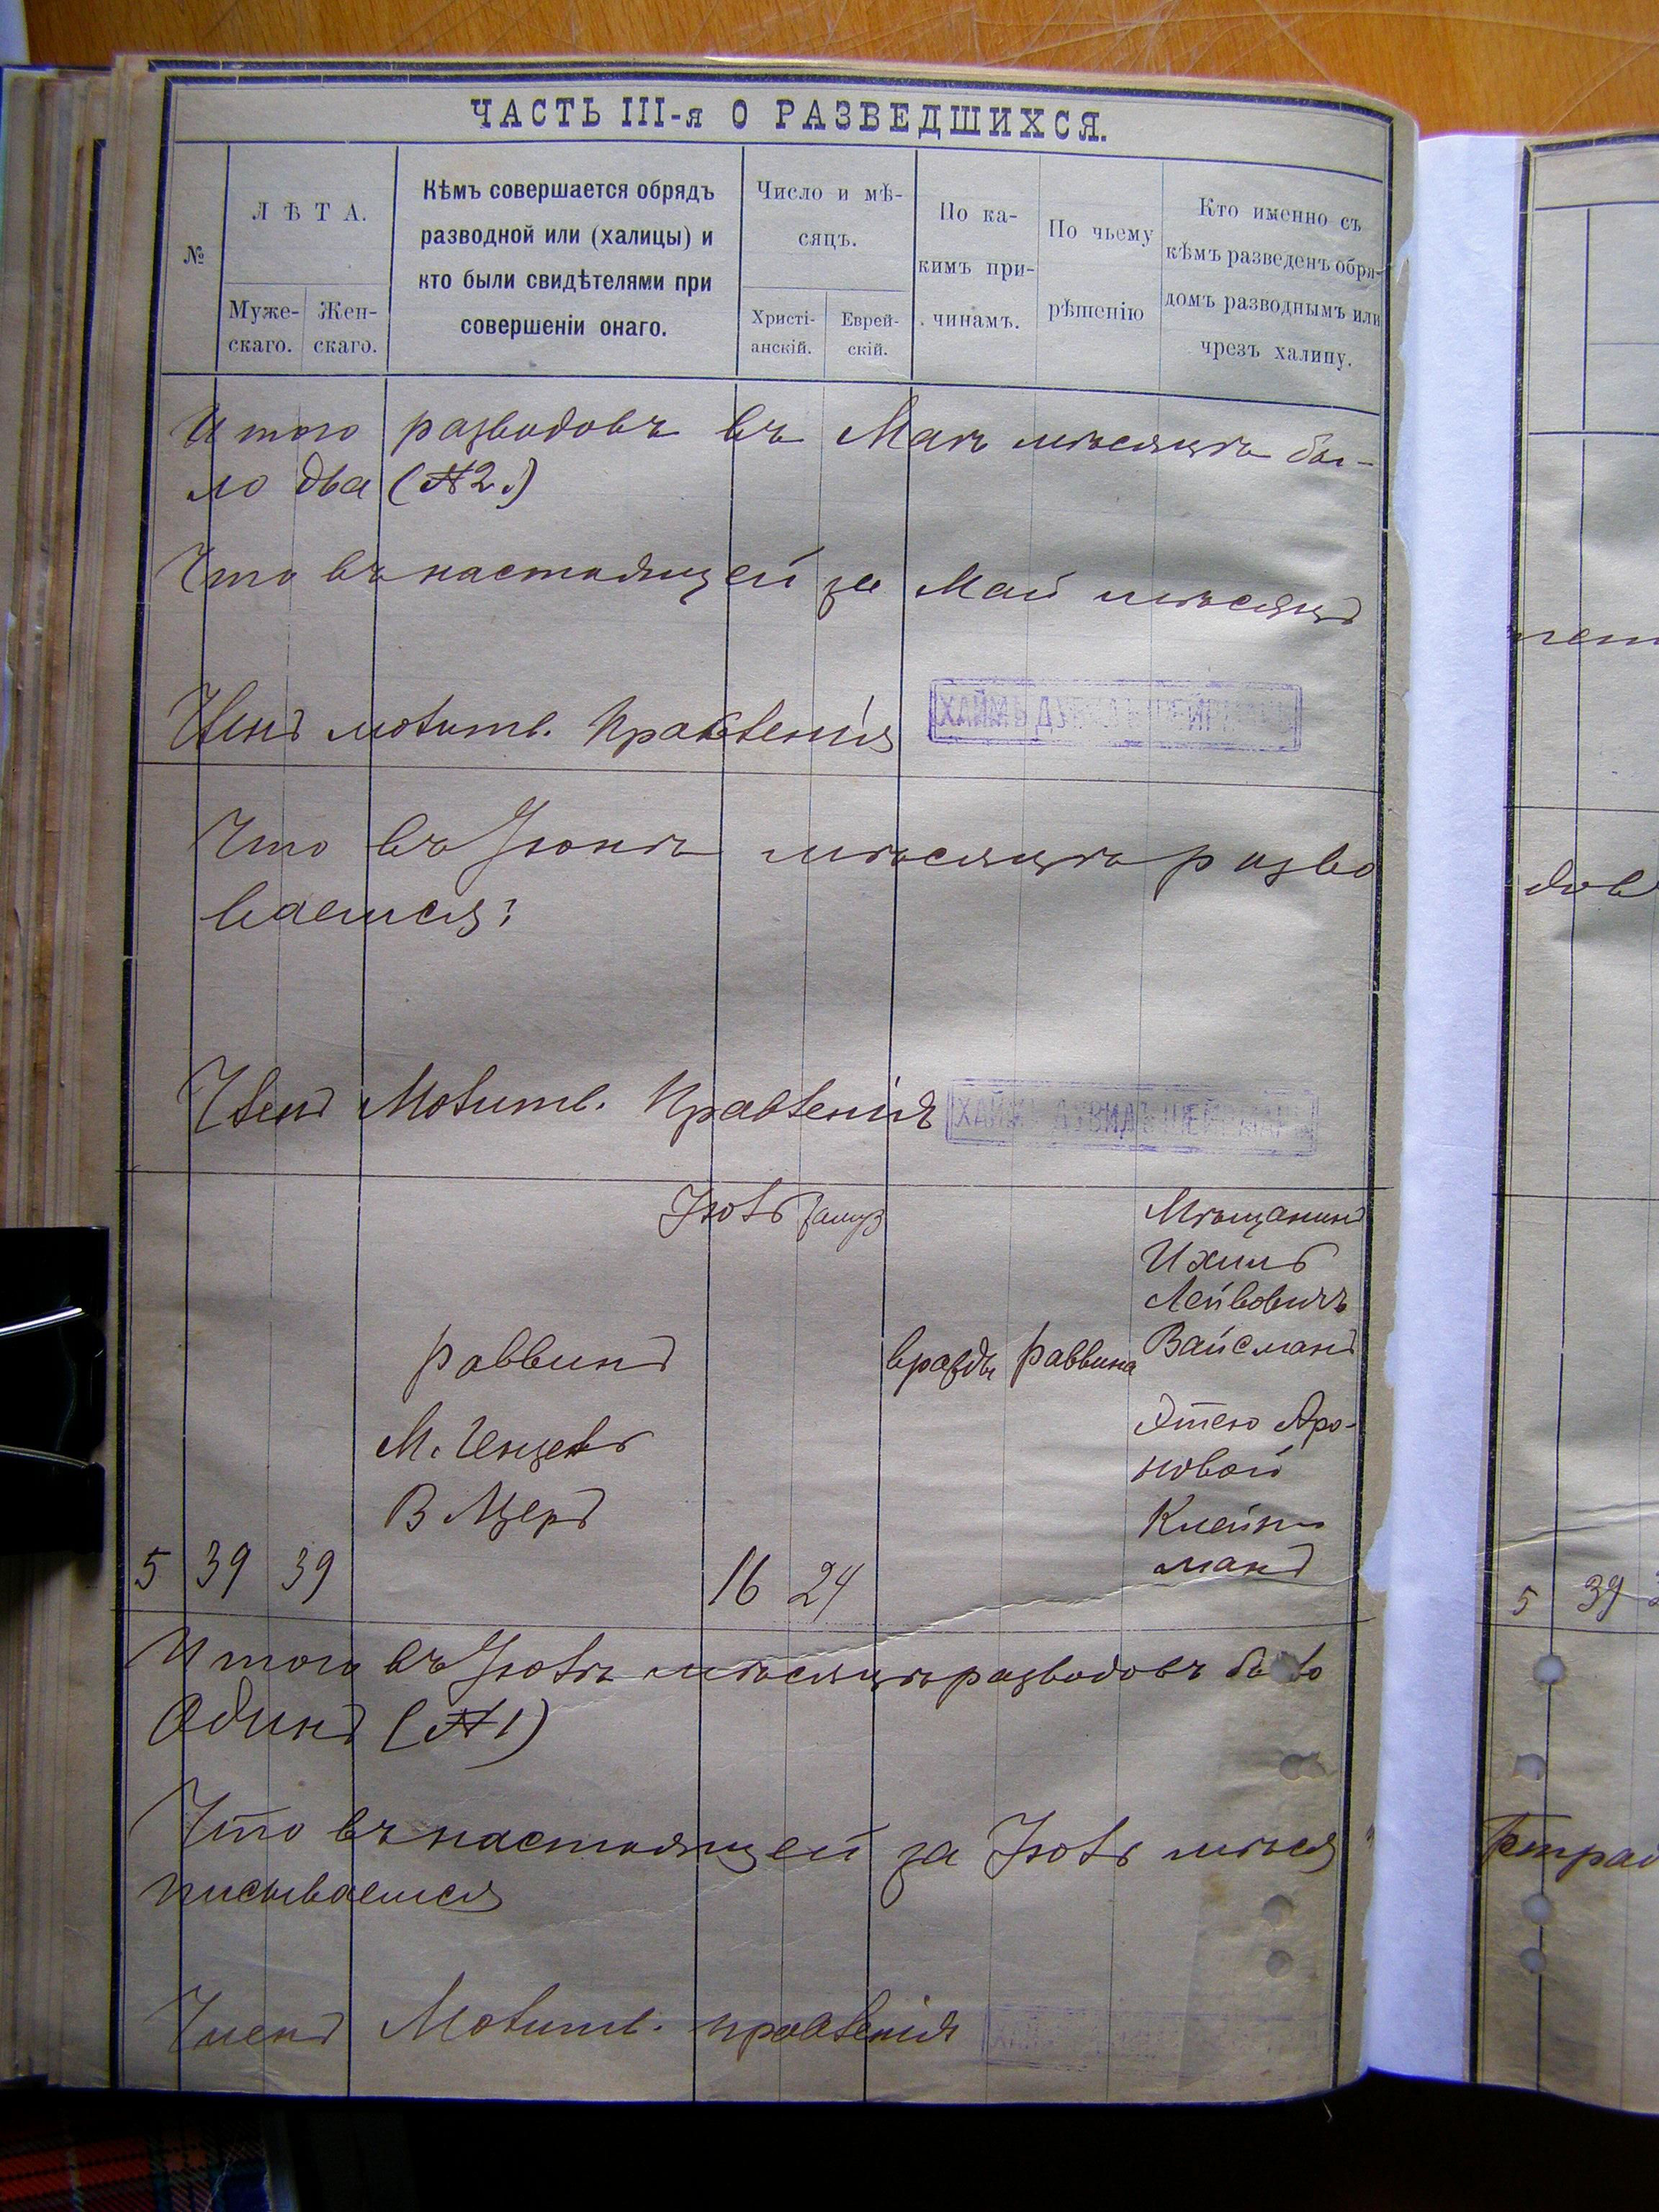 ЧАСТЬ III-я О РАЗВЕДШИХСЯ.
№
ЛѢТА.
Муже-
скаго.
Жен-
скаго.
Кѣмъ совершается обрядъ
разводной или (халицы) и
кто были свидѣтелями при
совершеніи онаго.
Число и мѣ-
сяцъ.
Христі-
анскій.
Еврей-
скій.
По ка-
кимъ при-
чинамъ.
По чьему
рѣшенію
Кто именно съ
кѣмъ разведенъ обря-
домъ разводнымъ или
чрезъ халицу.
Итого разводовъ въ Маѣ мѣсяцѣ бы-
ло два (№2.)
Что въ настоящей за Май мѣсяцъ
Членъ молитв. Правленія ХАЙМЪ ДУВИДЪ ШЕЙРМАНЪ
Что въ Іюнѣ мѣсяцѣ разво
вается;
Членъ Молитв. Правленія ХАЙМЪ ДУВИДЪ ШЕЙРМАНЪ
Іюль Тамуз
Мѣщанинъ
Ихиль
Лейбовичъ
Вайсманъ
Раввинъ
вражды
Раввина
Этею Аро-
новой
Клейн-
манъ
5 39 39
16 24
5 39
Итого въ Іюлѣ мѣсяцѣ разводовъ было
Одинъ (№1)
Что въ настоящей за Іюль мѣся
тетрад
писывается
Членъ Молитв. правленія